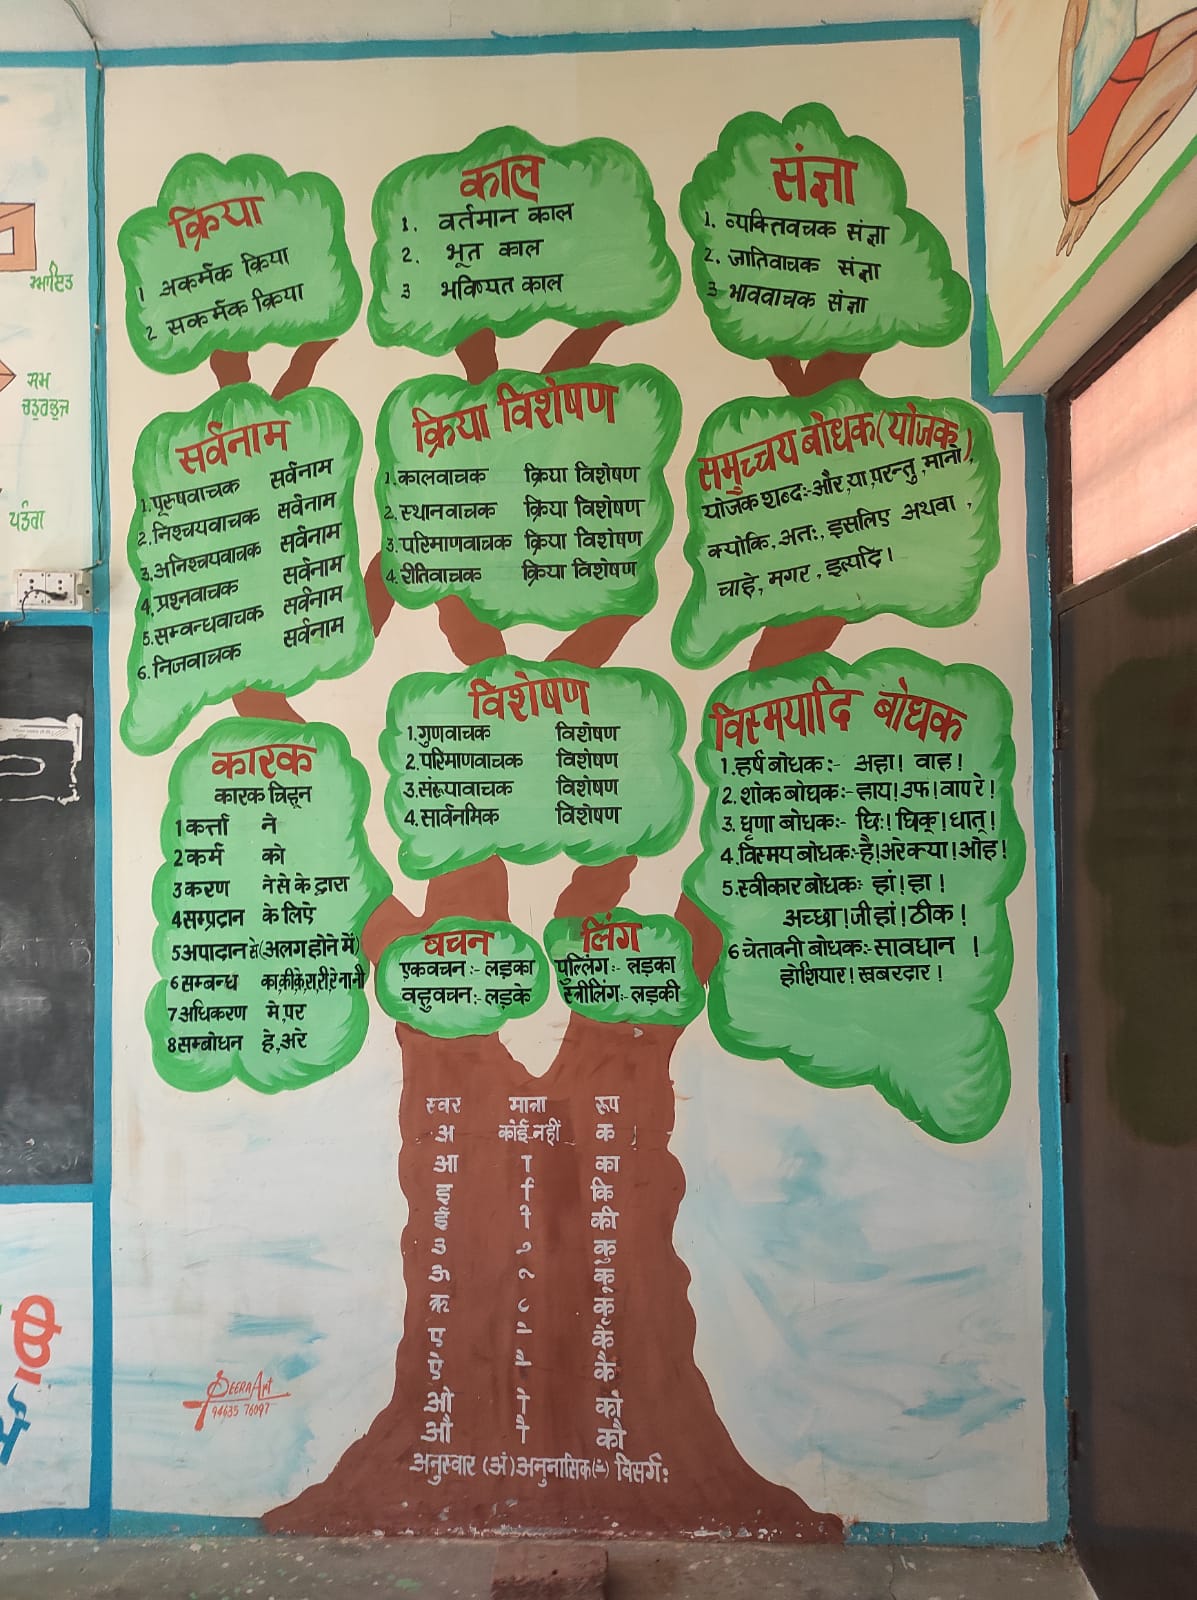 क्रिया
1 अकर्मक क्रिया
2 सकर्मक क्रिया
काल
1. वर्तमान काल
2. भूत काल
3 भविष्यत काल
संज्ञा
1. व्यक्तिवचक संज्ञा
2. जातिवाचक संज्ञा
3 भाववाचक संज्ञा
सर्वनाम
1. पुरूषवाचक सर्वनाम
2. निश्चयवाचक सर्वनाम
3. अनिश्चयवाचक सर्वनाम
4. प्रश्नवाचक सर्वनाम
5. सम्बन्धवाचक सर्वनाम
6. निजवाचक सर्वनाम
क्रिया विशेषण
1. कालवाचक क्रिया विशेषण
2. स्थानवाचक क्रिया विशेषण
3. परिमाणवाचक क्रिया विशेषण
4. रीतिवाचक क्रिया विशेषण
समुच्चय बोधक (योजक)
योजक शब्द:- और, या, परन्तु, मानो,
क्योकि, अतः, इसलिए अथवा,
चाहे, मगर, इत्यदि।
कारक
कारक चिह्न
1 कर्त्ता ने
2 कर्म को
3 करण ने से के द्वारा
4 सम्प्रदान के लिए
5 अपादान से (अलग होने में)
6 सम्बन्ध का,की,के,रा,री,रे ना नी
7 अधिकरण मे, पर
8 सम्बोधन हे, अरे
विशेषण
1. गुणवाचक विशेषण
2. परिमाणवाचक विशेषण
3. संख्यावाचक विशेषण
4. सार्वनमिक विशेषण
विस्मयादि बोधक
1. हर्ष बोधक :- अहा! वाह!
2. शोक बोधक :- हाय! उफ! वाप रे!
3. घृणा बोधक :- छिः! धिक्! धात्!
4. विस्मय बोधक :- है! अरे क्या! ओह!
5. स्वीकार बोधक :- हां! हा!
अच्छा! जी हां! ठीक!
6 चेतावनी बोधक :- सावधान !
होशियार! खबरदार!
वचन
एकवचन :- लड़का
वहुवचन :- लड़के
लिंग
पुल्लिंग :- लड़का
स्त्रीलिंग :- लड़की
स्वर मात्रा रूप
अ कोई नहीं क
आ ा का
इ ि कि
ई ी की
उ ु कु
ऊ ू कू
ऋ ृ कृ
ए े के
ऐ ै कै
ओ ो को
औ ौ कौ
अनुस्वार (अं) अनुनासिक (ँ) विसर्ग :
94635 76097
ਆਇਤ
ਸਮ
ਚਤੁਰਭੁਜ